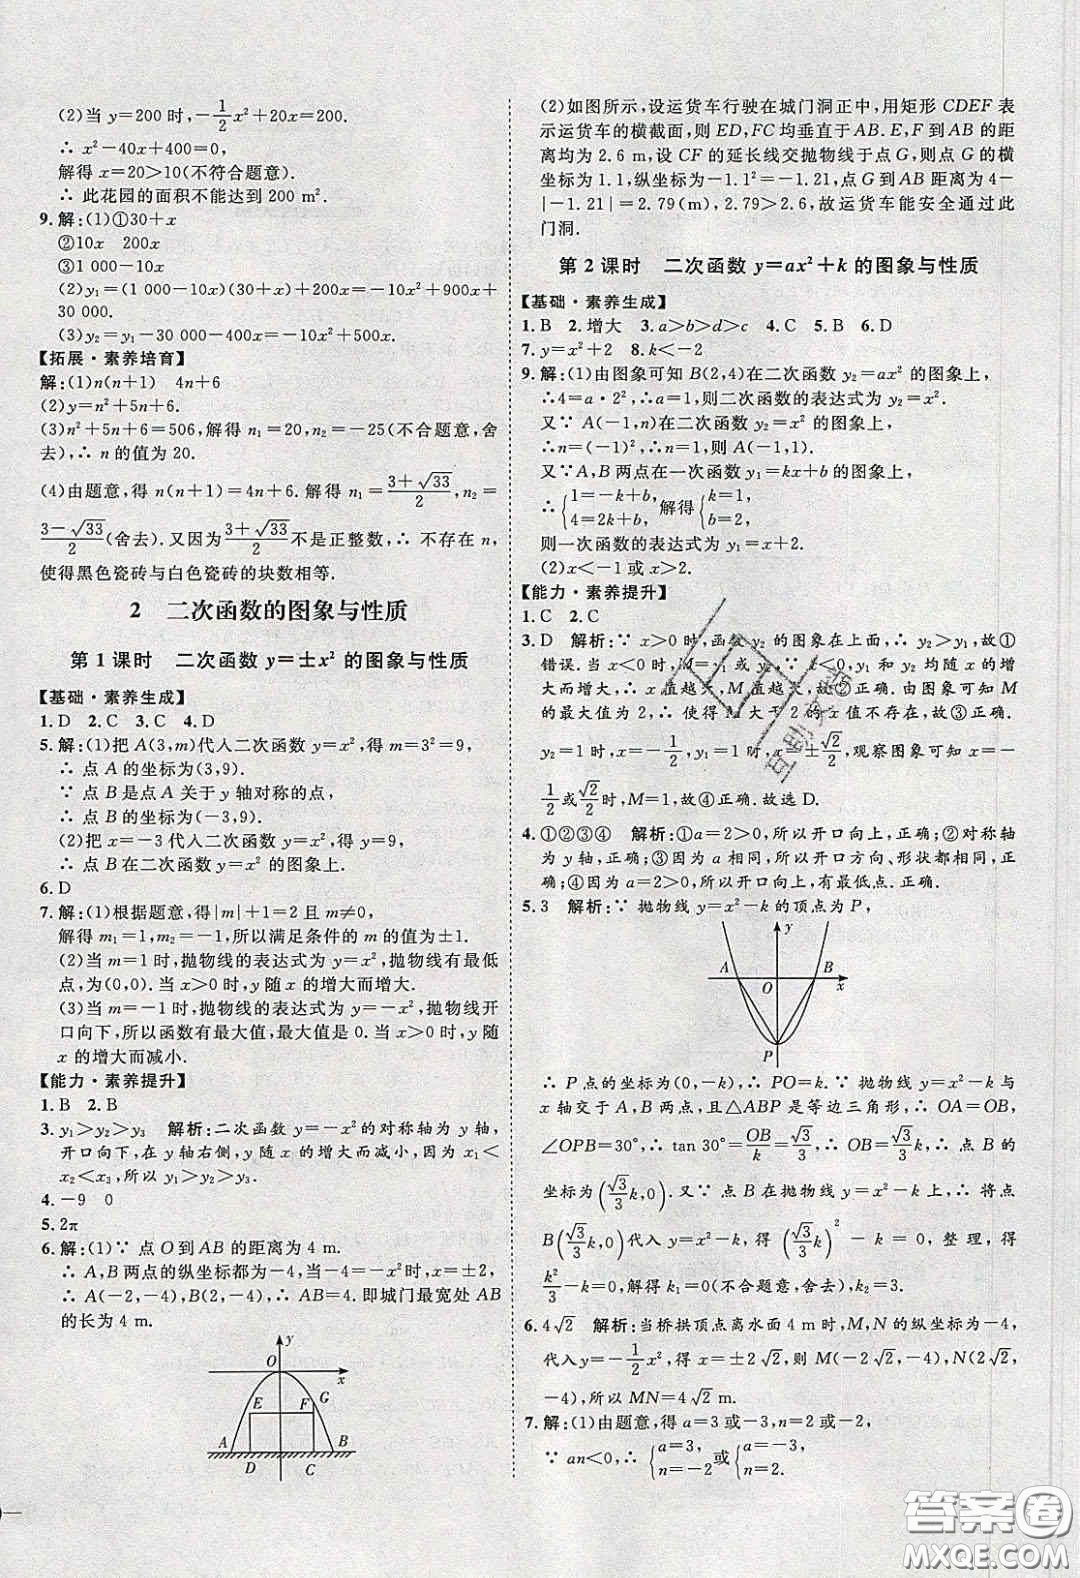 (2)当 y=200 时,-1/2x²+20x=200.
∴ x²-40x+400=0,
解得 x=20>10(不符合题意).
∴ 此花园的面积不能达到 200 m².
9.解:(1)①30+x
②10x 200x
③1 000-10x
(2)y₁=(1 000-10x)(30+x)+200x=-10x²+900x+
30 000.
(3)y₂=y₁-30 000-400x=-10x²+500x.
【拓展·素养培育】
解:(1)n(n+1) 4n+6
(2)y=n²+5n+6.
(3)n²+5n+6=506,解得 n₁=20,n₂=-25(不合题意,舍
去),∴ n 的值为 20.
(4)由题意,得 n(n+1)=4n+6.解得 n₁=(3+√33)/2,n₂=
(3-√33)/2(舍去).又因为(3+√33)/2不是正整数,∴ 不存在 n,
使得黑色瓷砖与白色瓷砖的块数相等.
2 二次函数的图象与性质
第 1 课时 二次函数 y=±x² 的图象与性质
【基础·素养生成】
1.D 2.C 3.C 4.D
5.解:(1)把 A(3,m)代入二次函数 y=x²,得 m=3²=9,
∴ 点 A 的坐标为(3,9).
∵ 点 B 是点 A 关于 y 轴对称的点,
∴ 点 B 的坐标为(-3,9).
(2)把 x=-3 代入二次函数 y=x²,得 y=9,
∴ 点 B 在二次函数 y=x² 的图象上.
6.D
7.解:(1)根据题意,得|m|+1=2 且 m≠0,
解得 m₁=1,m₂=-1,所以满足条件的 m 的值为±1.
(2)当 m=1 时,抛物线的表达式为 y=x²,抛物线有最低
点,为(0,0).当 x>0 时,y 随 x 的增大而增大.
(3)当 m=-1 时,抛物线的表达式为 y=-x²,抛物线开
口向下,所以函数有最大值,最大值是 0.当 x>0 时,y 随
x 的增大而减小.
【能力·素养提升】
1.B 2.B
3.y₁>y₂>y₃ 解析:二次函数 y=-x² 的对称轴为 y 轴,
开口向下,在 y 轴右侧,y 随 x 的增大而减小,因为 x₁<
x₂<x₃,所以 y₁>y₂>y₃.
4.-9 0
5.2π
6.解:(1)∵ 点 O 到 AB 的距离为 4 m.
∴ A,B 两点的纵坐标都为-4,当-4=-x²时,x=±2,
∴ A(-2,-4),B(2,-4),∴ AB=4.即城门最宽处 AB
的长为 4 m.
y
O
x
E
F
G
A
B
D
C
(2)如图所示,设运货车行驶在城门洞正中,用矩形 CDEF 表
示运货车的横截面,则 ED,FC 均垂直于 AB.E,F 到 AB 的距
离均为 2.6 m,设 CF 的延长线交抛物线于点 G,则点 G 的横
坐标为 1.1,纵坐标为-1.1²=-1.21,点 G 到 AB 距离为 4-
|-1.21|=2.79(m),2.79>2.6,故运货车能安全通过此
门洞.
第 2 课时 二次函数 y=ax²+k 的图象与性质
【基础·素养生成】
1.B 2.增大 3.a>b>d>c 4.C 5.B 6.D
7.y=x²+2 8.k<-2
9.解:(1)由图象可知 B(2,4)在二次函数 y₂=ax² 的图象上,
∴4=a·2²,∴a=1,则二次函数的表达式为 y₂=x².
又∵ A(-1,n)在二次函数 y₂=x² 的图象上,
∴n=(-1)²,∴n=1,则 A(-1,1).
又∵A,B 两点在一次函数 y₁=kx+b 的图象上,
∴{1=-k+b, 4=2k+b,解得{k=1, b=2.
则一次函数的表达式为 y₁=x+2.
(2)x<-1 或 x>2.
【能力·素养提升】
1.C 2.C
3.D 解析:∵ x>0 时,函数 y₂ 的图象在上面,∴ y₂>y₁,故①
错误.当 x<0 时,M=y₁ 或 y₂,∵ x<0 时,y₁ 和 y₂ 均随 x 的增
大而增大,∴ x 值越大,M 值越大,故②正确.由图象可知 M
的最大值为 2,∴ 使得 M 大于 2 的 x 值不存在,故③正确.
y₂=1 时,x=-1/2,y₁=1 时,x=±√2/2,观察图象可知,x=-
1/2或√2/2时,M=1,故④正确.故选 D.
4.①②③④ 解析:①a=2>0,所以开口向上,正确;②对称轴
为 y 轴,正确;③因为 a 相同,所以开口方向、形状都相同,正
确;④因为 a=2>0,所以开口向上,都有最低点.正确.
5.3 解析:∵ 抛物线 y=x²-k 的顶点为 P,
y
A
O
B
x
P
∴ P 点的坐标为(0,-k),∴ PO=k.∵ 抛物线 y=x²-k 与
x 轴交于 A,B 两点,且△ABP 是等边三角形,∴ OA=OB,
∠OPB=30°,∴ tan 30°=OB/k=√3/3,∴ OB=√3/3k,∴ 点 B 的
坐标为(√3/3k,0).又∵ 点 B 在抛物线 y=x²-k 上,∴ 将点
B(√3/3k,0)代入 y=x²-k,得(√3/3k)²-k=0,整理,得
k²/3-k=0,解得 k₁=0(不合题意,舍去),k₂=3.
6.4√2 解析:当桥拱顶点离水面 4 m 时,M,N 的纵坐标为-4,
代入 y=-1/2x²,得 x=±2√2,则 M(-2√2,-4),N(2√2,
-4),所以 MN=4√2 m.
7.解:(1)由题意,得 a=3 或-3,n=2 或-2,
∵ an<0,∴{a=3, n=-2或{a=-3, n=2.
答案圈
MXQE.COM